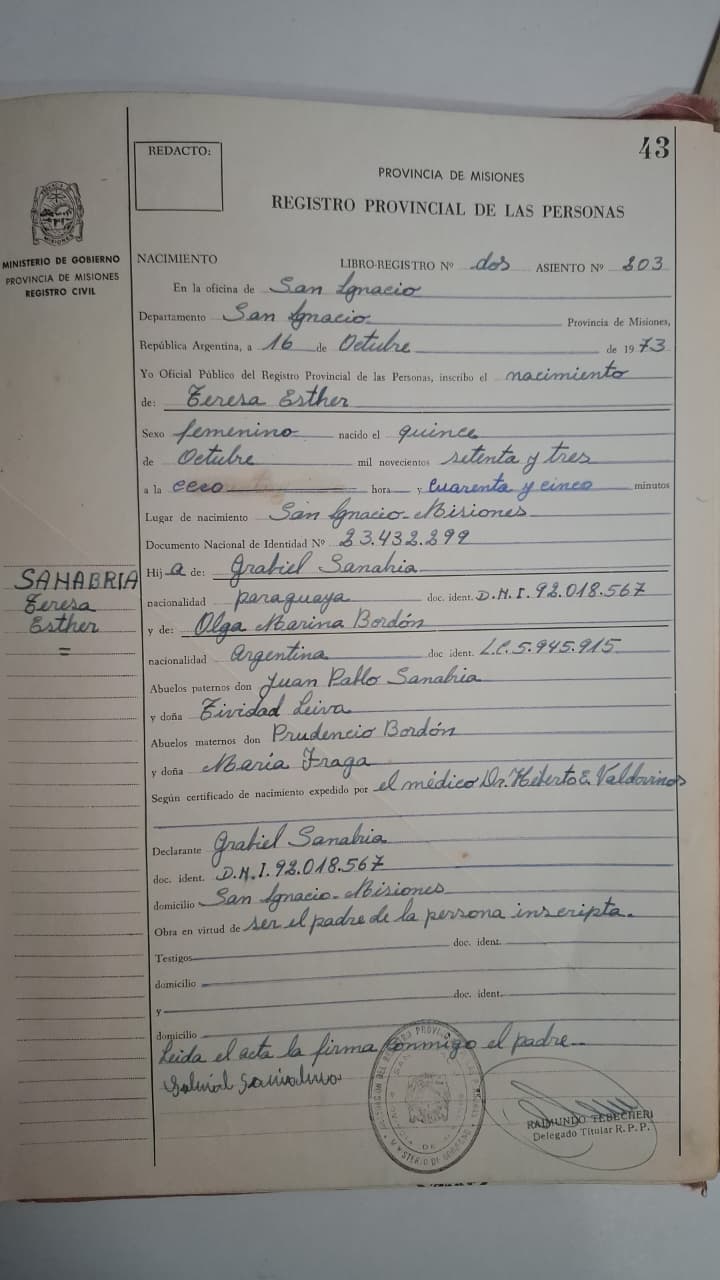 43
REDACTO:
PROVINCIA DE MISIONES
REGISTRO PROVINCIAL DE LAS PERSONAS
MINISTERIO DE GOBIERNO
PROVINCIA DE MISIONES
REGISTRO CIVIL
NACIMIENTO LIBRO-REGISTRO Nº dos ASIENTO Nº 203
En la oficina de San Ignacio
Departamento San Ignacio Provincia de Misiones,
República Argentina, a 16 de Octubre de 1973
Yo Oficial Público del Registro Provincial de las Personas, inscribo el nacimiento
de: Teresa Esther
Sexo femenino nacido el quince
de Octubre mil novecientos setenta y tres
a la cero hora y cuarenta y cinco minutos
Lugar de nacimiento San Ignacio-Misiones
Documento Nacional de Identidad Nº 23.432.299
SANABRIA
Teresa
Esther
=
Hija de: Grabiel Sanabria
nacionalidad paraguaya doc. ident. D.N.I. 92.018.567
y de: Olga Marina Bordón
nacionalidad Argentina doc ident. L.C. 5.945.915
Abuelos paternos don Juan Pablo Sanabria
y doña Tividad Leiva
Abuelos maternos don Prudencio Bordón
y doña María Fraga
Según certificado de nacimiento expedido por el médico Dr. Heberto E. Valdovinos
Declarante Grabiel Sanabria
doc. ident. D.N.I. 92.018.567
domicilio San Ignacio-Misiones
Obra en virtud de ser el padre de la persona inscripta.
Testigos doc. ident.
domicilio
y doc. ident.
domicilio
Leida el acta la firma conmigo el padre
RAIMUNDO TEBECHERI
Delegado Titular R. P. P.